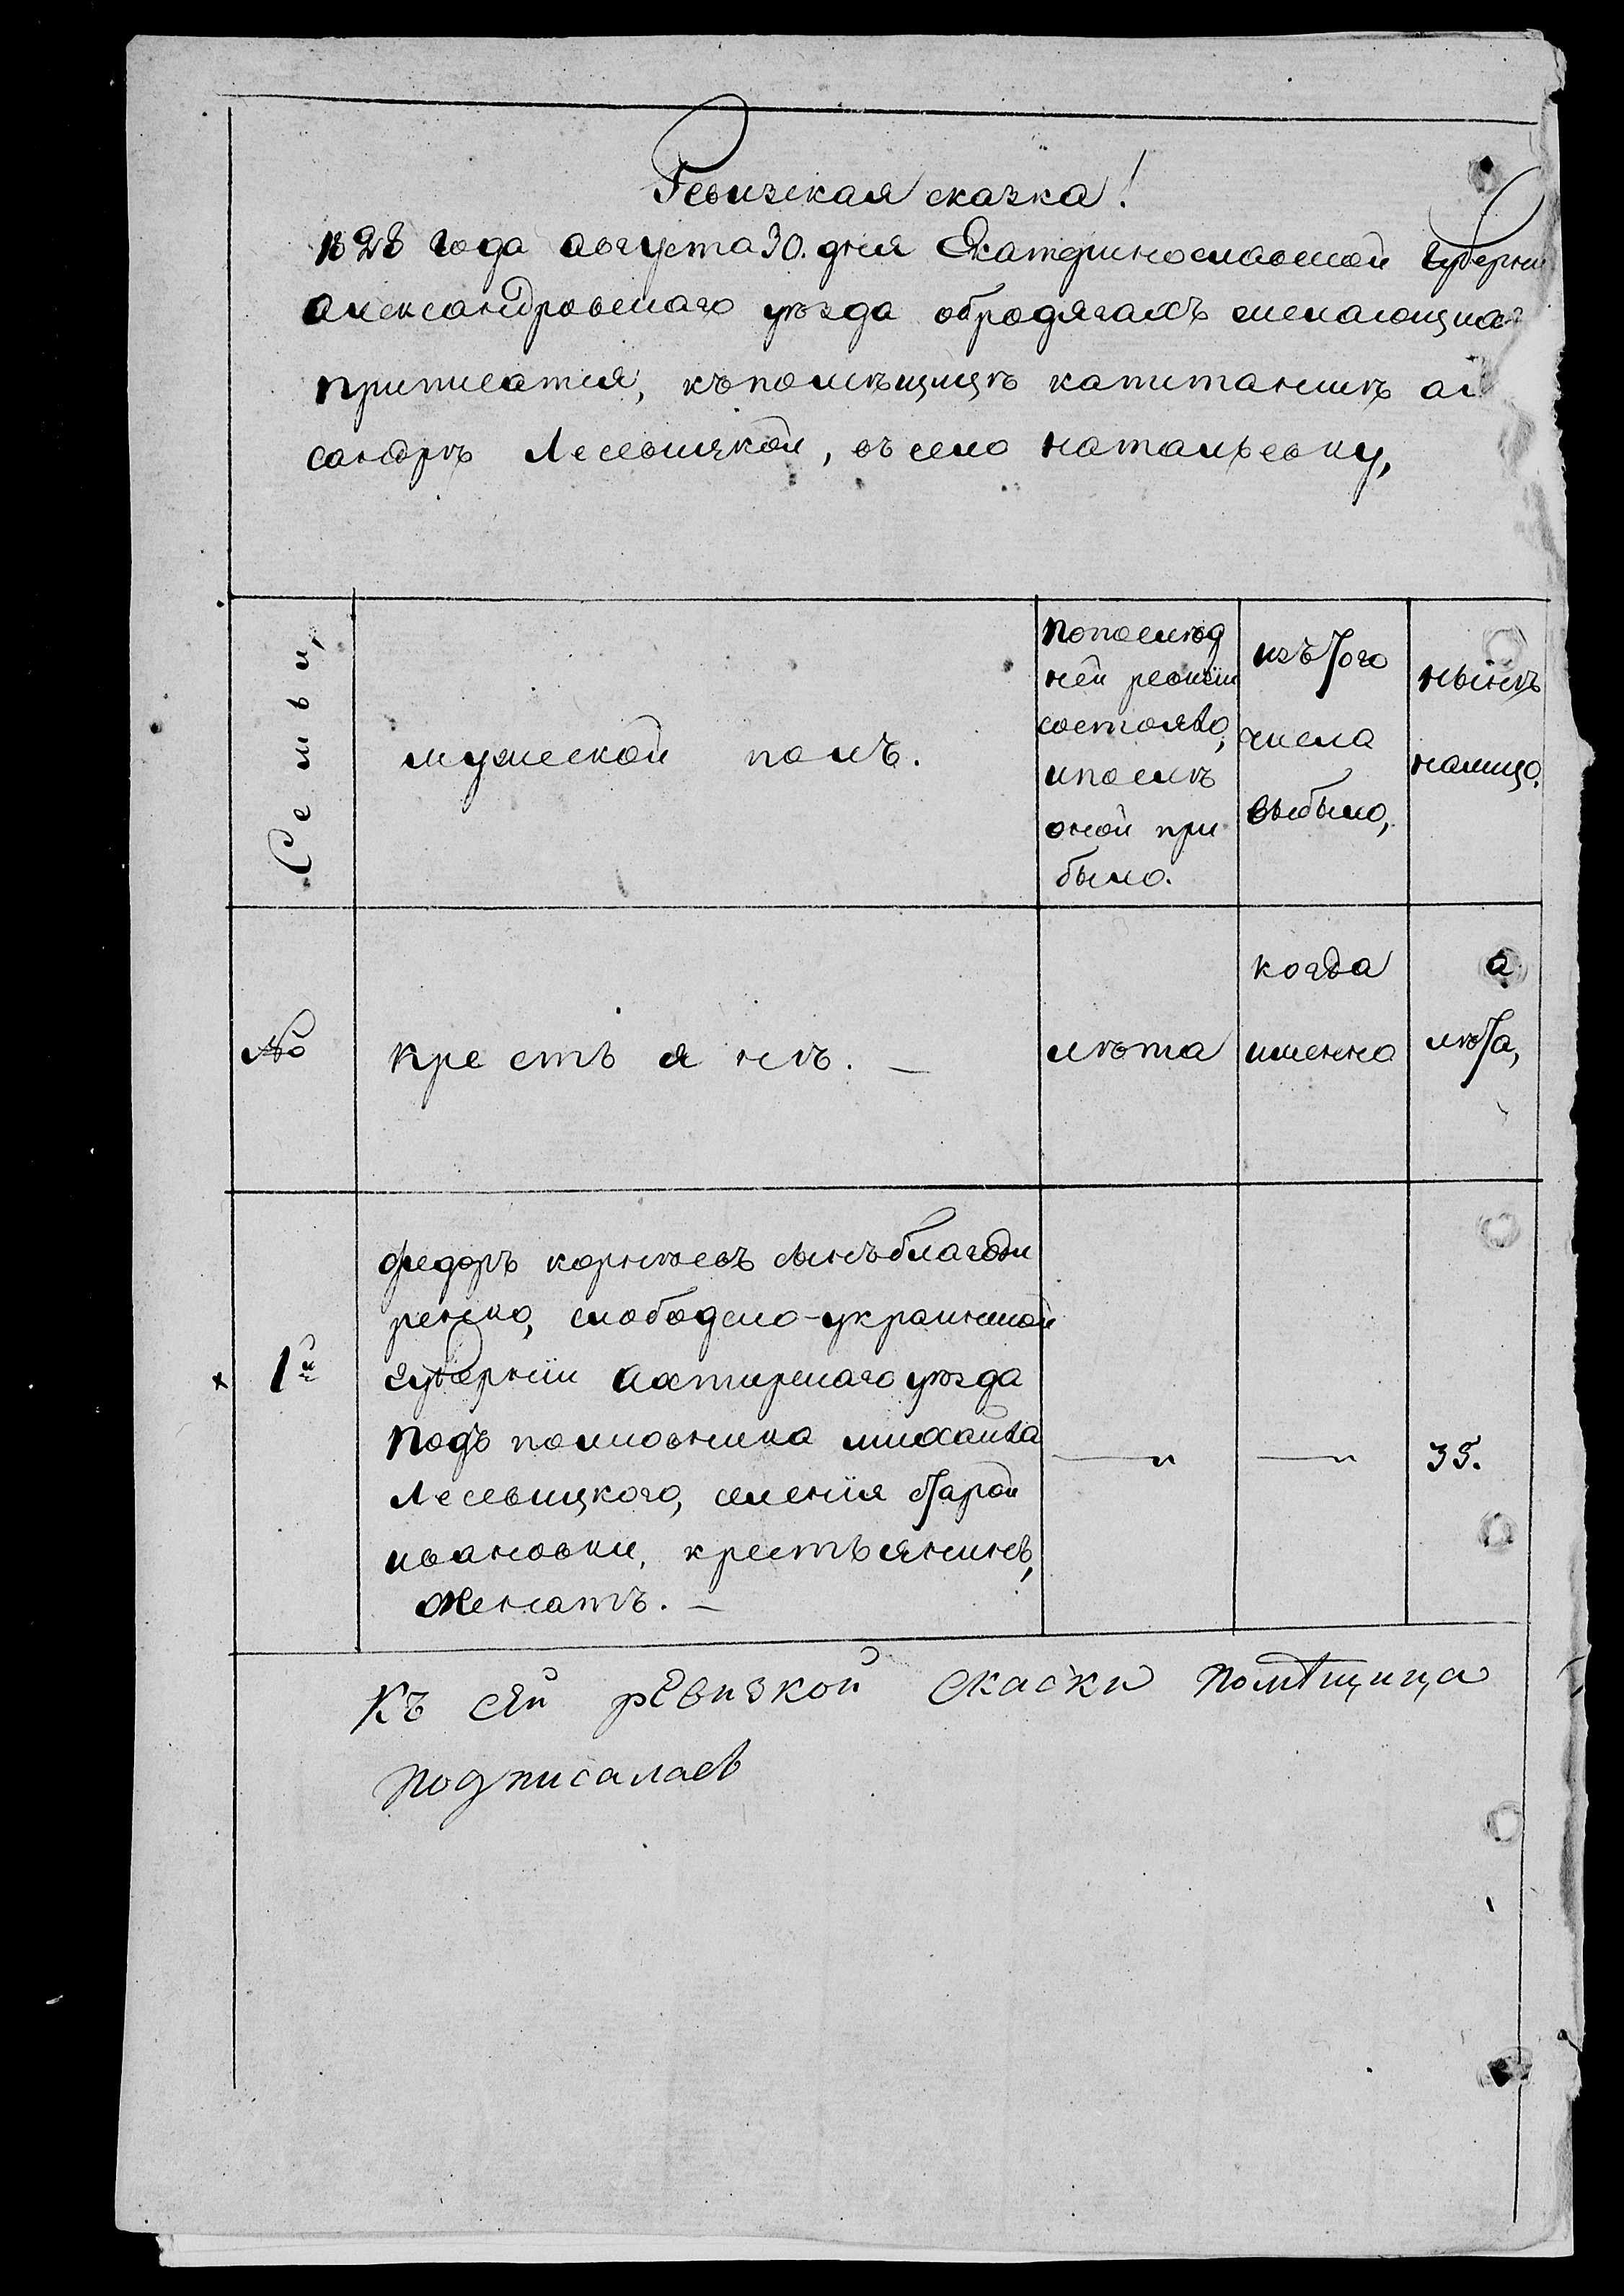 Ревизская сказка!
1828 года августа 30. дня Екатеринославской Губернии
Александровскаго уѣзда обродягахъ желающихъ
приписатся, къ помѣщицѣ капитаншѣ
сандрѣ Лесевицкой, въ село натальевку,
Семьи,
мужеской полъ.
Попослѣд
ней ревизіи
состояло,
ипослѣ
оной при
было.
изъ того
числа
выбыло,
нынѣ
налицо.
№
крестьянѣ. —
лѣта
когда
именно
а
лѣта,
1й
федоръ корнѣевъ сынъ благоди
ренко, слободско-украинской
губерніи Ахтирскаго уѣзда
подъ полковника михаила
Лесевицкого, селенія старой
ивановки, крестьянинъ,
женатъ. —
— „
— „
35.
Къ сей ревизкой скаски помѣщица
подписалась